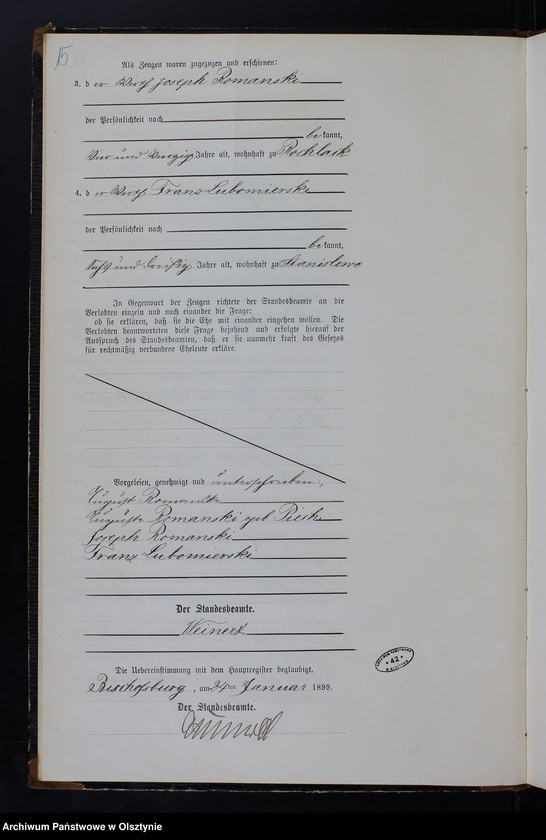 15
Als Zeugen waren zugezogen und erschienen:
3. d er Wirth Joseph Romanski
der Persönlichkeit nach
be kannt,
vier und Jahre alt, wohnhaft zu Rochlack
4. d er Wirth Franz Lubomierski
der Persönlichkeit nach
be kannt,
und dreißig Jahre alt, wohnhaft zu Stanislewo
In Gegenwart der Zeugen richtete der Standesbeamte an die
Verlobten einzeln und nach einander die Frage:
ob sie erklären, daß sie die Ehe mit einander eingehen wollen. Die
Verlobten beantworteten diese Frage bejahend und erfolgte hierauf der
Ausspruch des Standesbeamten, daß er sie nunmehr kraft des Gesetzes
für rechtmäßig verbundene Eheleute erkläre.
Vorgelesen, genehmigt und unterschrieben:
August Romanski
Auguste Romanski geb.
Joseph Romanski
Franz Lubomierski
Der Standesbeamte.
Weinert
Die Uebereinstimmung mit dem Hauptregister beglaubigt.
Bischofsburg, am 24ten Januar 1899.
Der Standesbeamte.
42
Archiwum Państwowe w Olsztynie